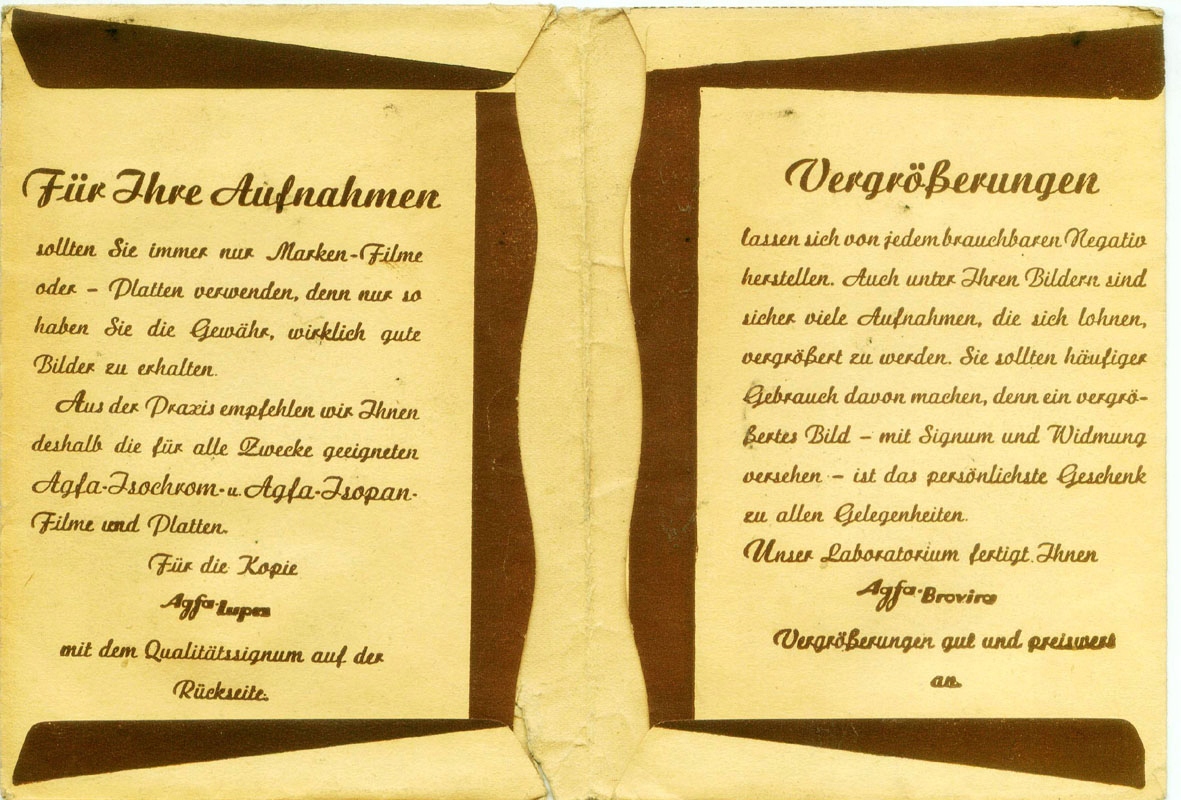 Für Ihre Aufnahmen
sollten Sie immer nur Marken-Filme
oder – Platten verwenden, denn nur so
haben Sie die Gewähr, wirklich gute
Bilder zu erhalten.
Aus der Praxis empfehlen wir Ihnen
deshalb die für alle Zwecke geeigneten
Agfa-Isochrom- u. Agfa-Isopan-
Filme und Platten.
Für die Kopie
Agfa-Lupex
mit dem Qualitätssignum auf der
Rückseite.
Vergrößerungen
lassen sich von jedem brauchbaren Negativ
herstellen. Auch unter Ihren Bildern sind
sicher viele Aufnahmen, die sich lohnen,
vergrößert zu werden. Sie sollten häufiger
Gebrauch davon machen, denn ein vergrö-
ßertes Bild – mit Signum und Widmung
versehen – ist das persönlichste Geschenk
zu allen Gelegenheiten.
Unser Laboratorium fertigt Ihnen
Agfa-Brovira
Vergrößerungen gut und preiswert
an.